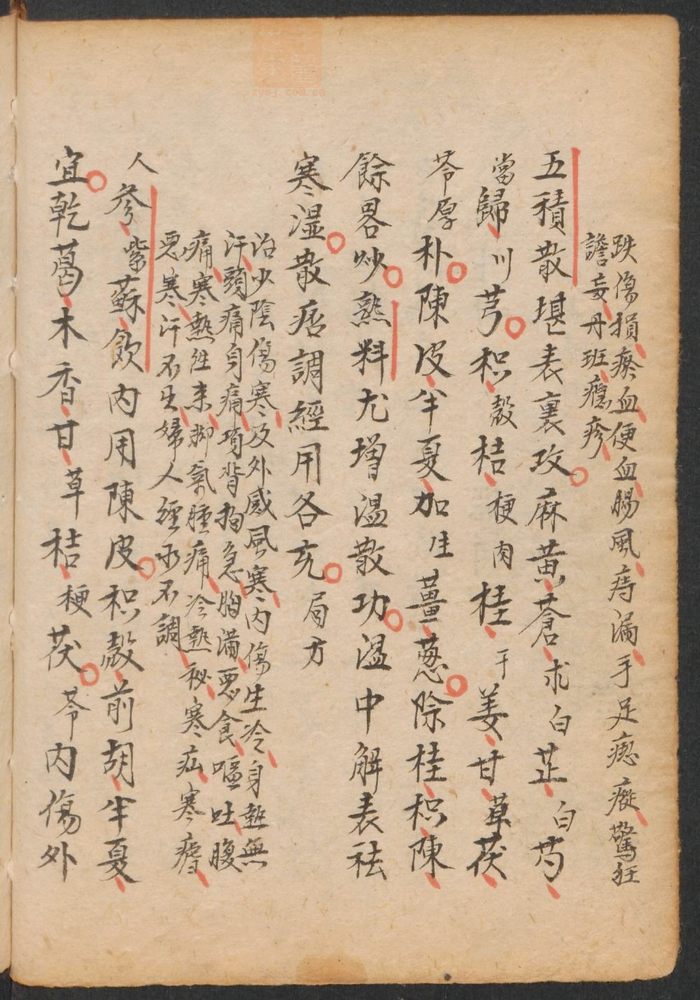 跌傷損瘀血便血腸風痔漏手足瘛瘲驚狂
譫妄丹班癮疹
五積散堪表裏攻麻黃蒼求白芷白芍
當歸川芎枳殼桔梗肉桂干姜甘草茯
苓厚朴陳皮半夏加生薑葱除桂枳陳
餘畧炒熟料尤增溫散功溫中解表祛
寒濕散痞調經用各充局方
治少陰傷寒及外感風寒內傷生冷身熱無
汗頭痛身痛項背拘急胸滿惡食嘔吐腹
痛寒熱往來脚氣腫痛冷熱秘寒疝寒瘧
惡寒汗不出婦人經水不調
人參紫蘇飲內用陳皮枳殼前胡半夏
宜乾葛木香甘草桔梗茯苓內傷外